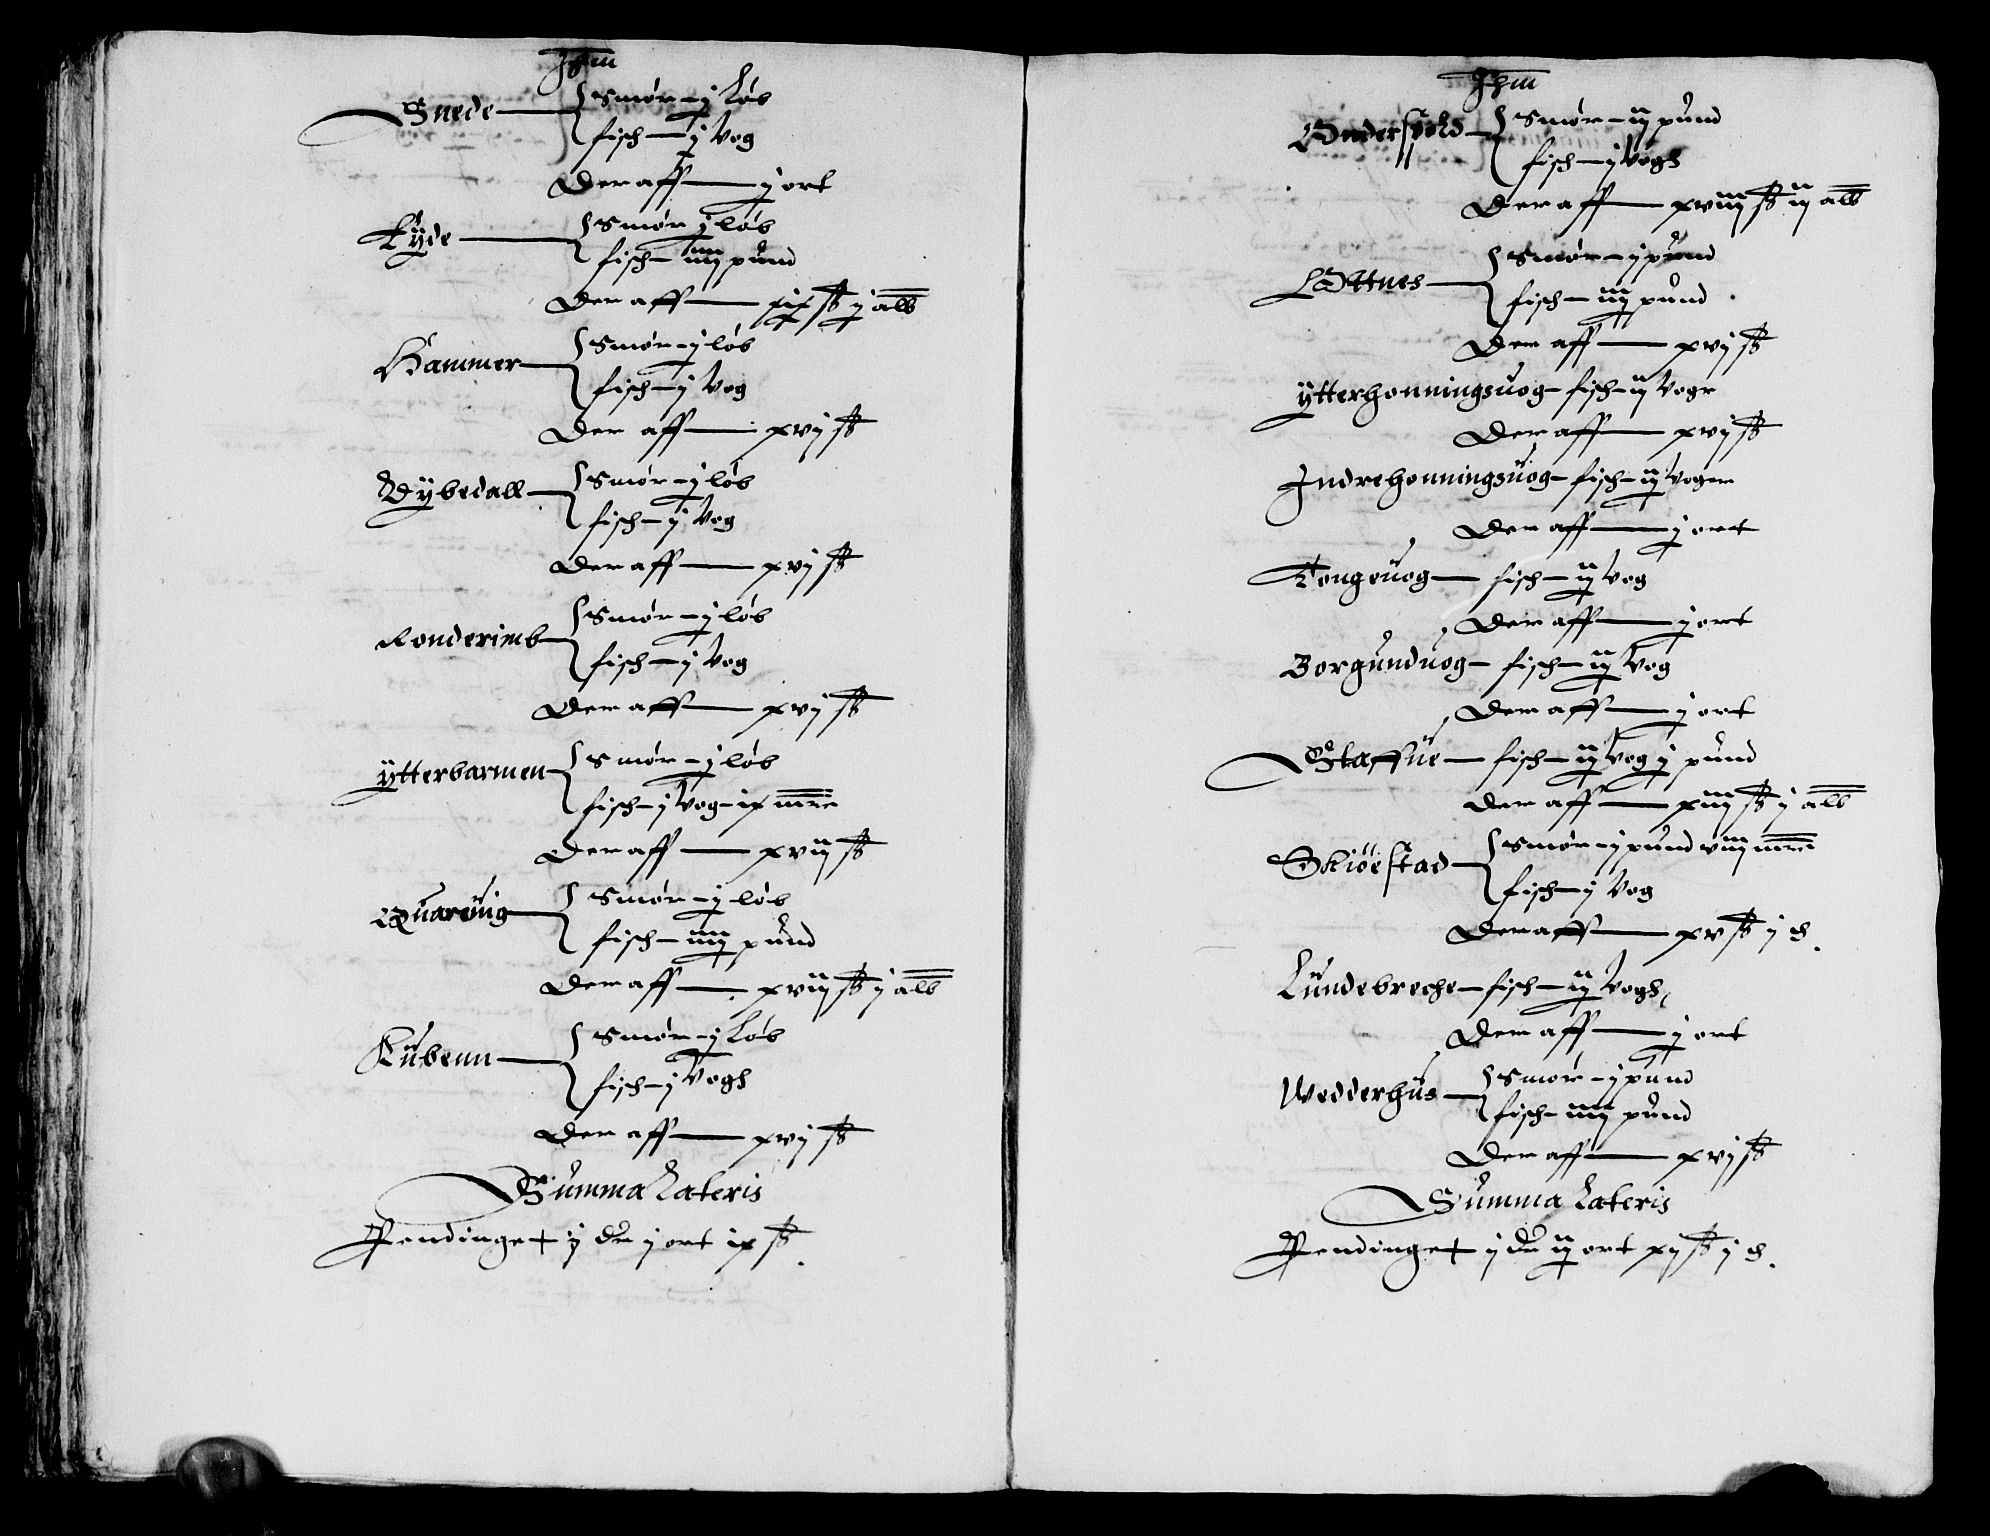 Ihm
Snede — Smør – j Løb
fisch – j Vog
Der aff — j ort
Eÿde — Smør j løb
fisch – iiij pund
Der aff — xix ß j alb
Hammer — Smør – j løb
fisch – j Vog
Der aff — xvj ß
Dÿbedall — Smør – j løb
fisch – j Vog
Der aff — xvj ß
Ronderimb — Smør – j løb
fisch – j Vog
Der aff — xvj ß
ÿtterbarmen — Smør – j løb
fisch – j Vog – ix mrē
Der aff — xvij ß
Quareuig — Smør – j løb
fisch – iiij pund
Der aff — xviij ß j alb
Kubenn — Smør – j Løb
fisch – j Vogh
Der aff — xvj ß
Summa Lateris
Pendinge + ij dr j ort ix ß
Ihm
Smør – iij pund
fisch – j Vogh
Der aff — xviij ß ij alb
Ottnes — Smør – j pund
fisch – iij pund
Der aff — xvj ß
ÿtterhonningsuog – fisch – ij Vogr
Der aff — xvj ß
Indrehonningsuog – fisch – iij Voger
Der aff — j ort
Tongeuog — fisch – iij Vog
Der aff — j ort
Borgunduog – fisch – iij Vog
Der aff — j ort
Staffue — fisch – ij Vog j pund
Der aff — xiiij ß j alb
Skiøestad — Smør – j pund viij mrē
fisch – j Vog
Der aff — xv ß j d
Lundebreche – fisch – iij Vogh
Der aff — j ort
Wedderhus — Smør – j pund
fisch – iiij pund
Der aff — xvj ß
Summa Lateris
Pendinge + ij dr iij ort xj ß j d